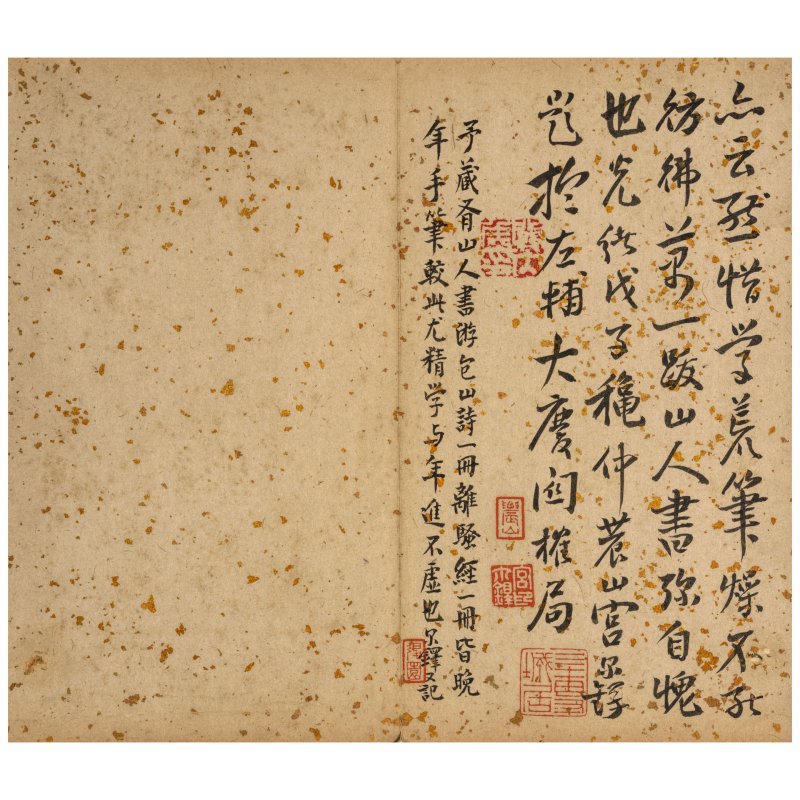 亦云然惜学荒筆燥不能
彷彿萬一跋山人書弥自愧
也光绪戊子穐仲農山宫尔鐸
题於左輔大慶関榷局
予藏有山人書游包山詩一冊離騷經一冊皆晚
年手筆較此尤精学与年進不虚也尔鐸又記
農山